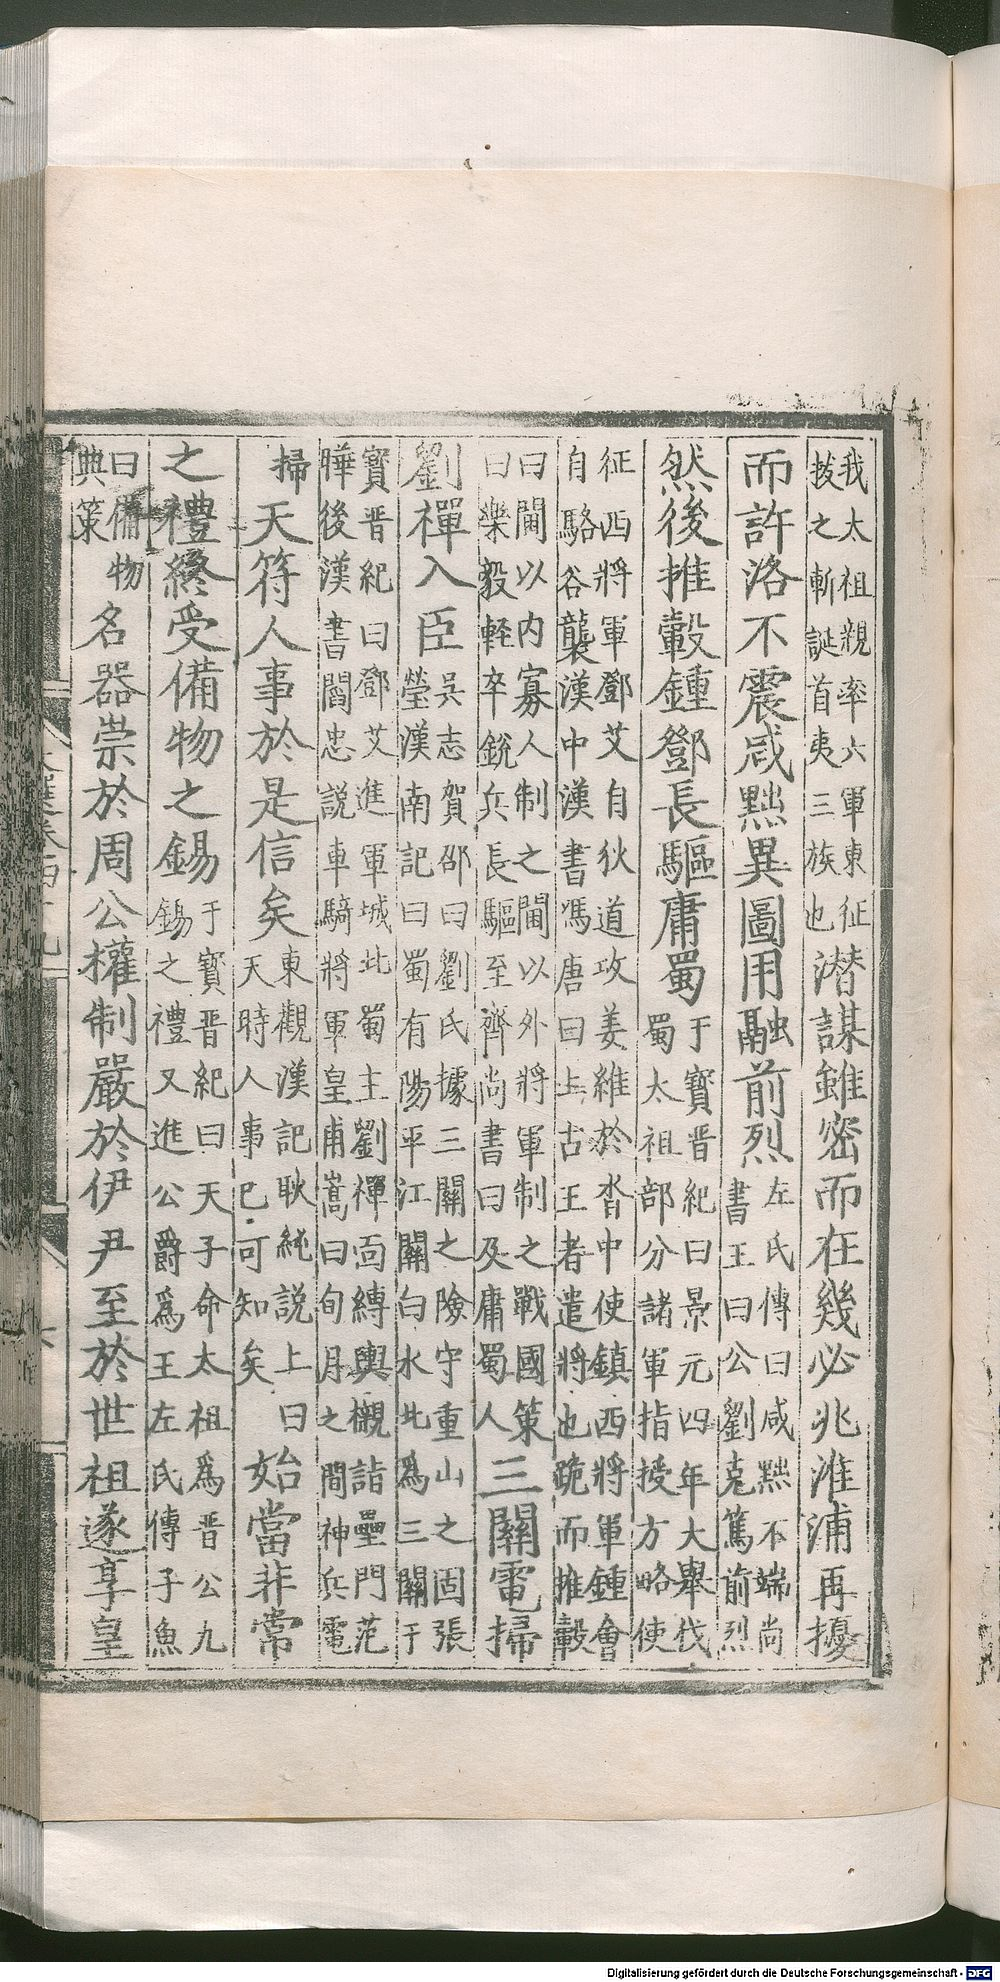 我太祖親率六軍東征
拔之斬誕首夷三族也潛謀雖密而在幾必兆淮浦再擾
而許洛不震咸黜異圖用融前烈左氏傳曰咸黜不端尚
書王曰公劉克篤前烈
然後推轂鍾鄧長驅庸蜀于寶晋紀曰景元四年大舉伐
蜀太祖部分諸軍指授方略使
征西將軍鄧艾自狄道攻姜維於沓中使鎮西將軍鍾會
自駱谷襲漢中漢書馮唐曰上古王者遣將也跪而推轂
曰閫以内寡人制之閫以外將軍制之戰國策
曰樂毅輕卒銳兵長驅至齊尚書曰及庸蜀人三關電掃
劉禪入臣吳志賀邵曰劉氏據三關之險守重山之固張
瑩漢南記曰蜀有陽平江關白水此為三關于
寶晋紀曰鄧艾進軍城北蜀主劉禪面縛輿櫬詣壘門范
曄後漢書閻忠説車騎將軍皇甫嵩曰旬月之間神兵電
掃天符人事於是信矣東觀漢記耿純説上曰
天時人事已可知矣始當非常
之禮終受備物之錫于寶晋紀曰天子命太祖為晋公九
錫之禮又進公爵為王左氏傳子魚
曰備物
典策名器崇於周公權制嚴於伊尹至於世祖遂享皇
Digitalisierung gefördert durch die Deutsche Forschungsgemeinschaft - DFG